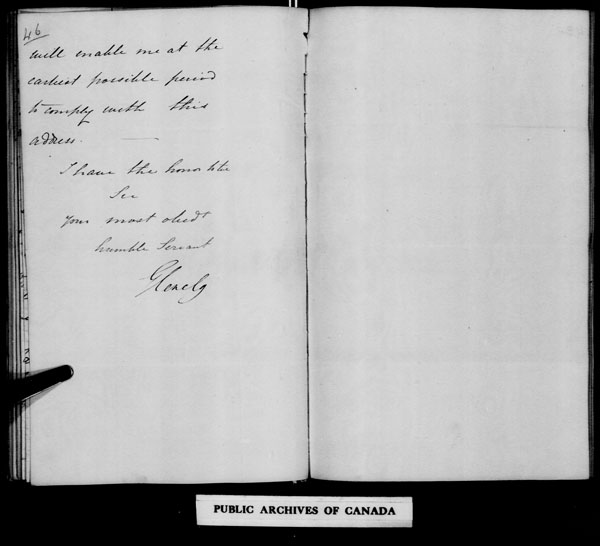 46
will enable me at the
earliest possible period
to comply with this
address.
I have the honor to be
Sir
Your most obedt
humble Servant
Glenelg
PUBLIC ARCHIVES OF CANADA